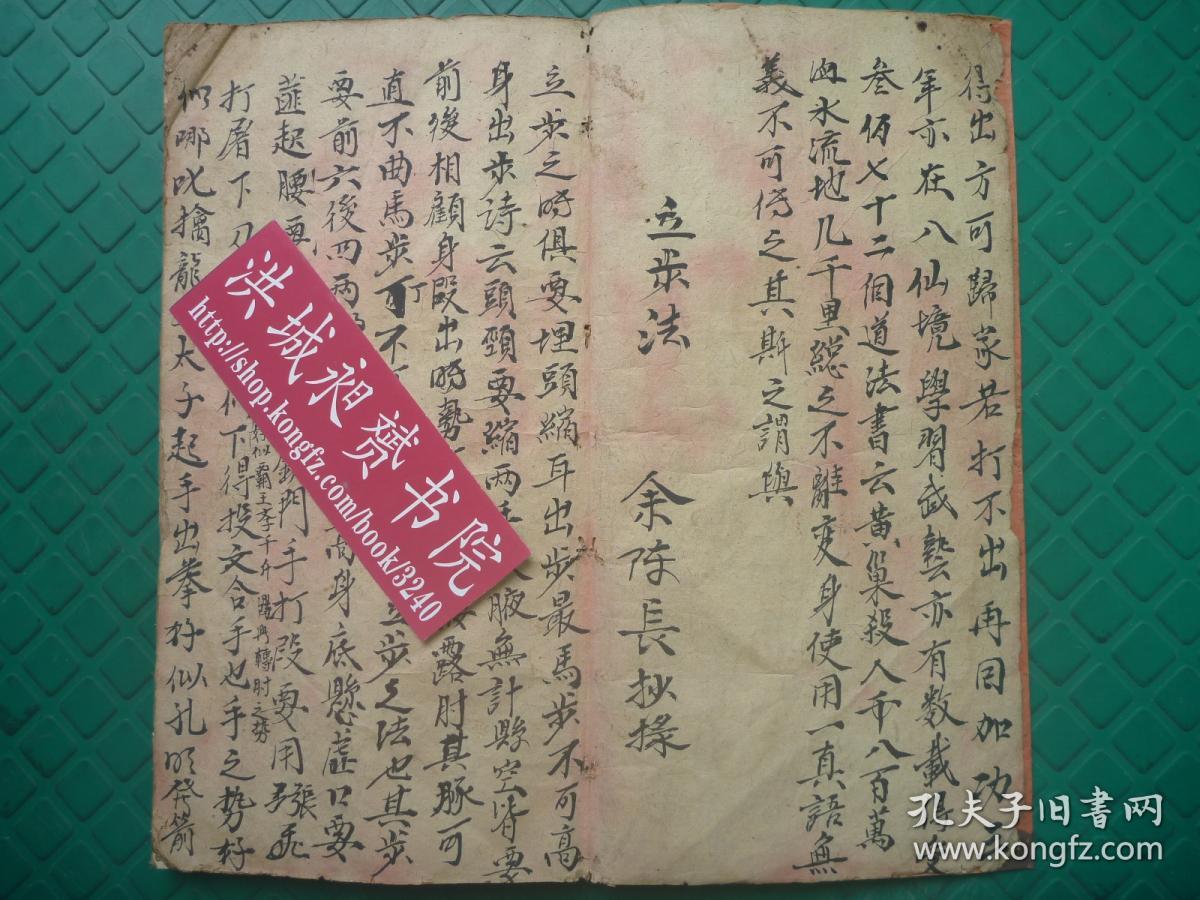 得出方可歸家若打不出再回加功
年亦在八仙境學習武藝亦有数載
叁佰七十二個道法書云黄巢殺人八百萬
血水流地几千里縂之不離变身使用一真語無
義不可傳之其斯之謂與
立步法 余陈長抄
立步之時俱要埋頭縮耳出步最馬步不可高
身出步詩云頭頸要縮两手腋無計縣空皆要
前後相顧身殴出時勢露肘其豚可
直不曲馬步可丁不立步之法也其步
要前六後四两高身底懸虚口要
起腰要鉄門手打段要用
好似霸王舉千斤 轉肘之势
打屠下刀下得投文合手也手之势好
似哪叱擒龍太子起手出拳好似孔明發箭
洪城昶赟书院
http://shop.kongfz.com/book/3240
孔夫子旧书网
www.kongfz.com